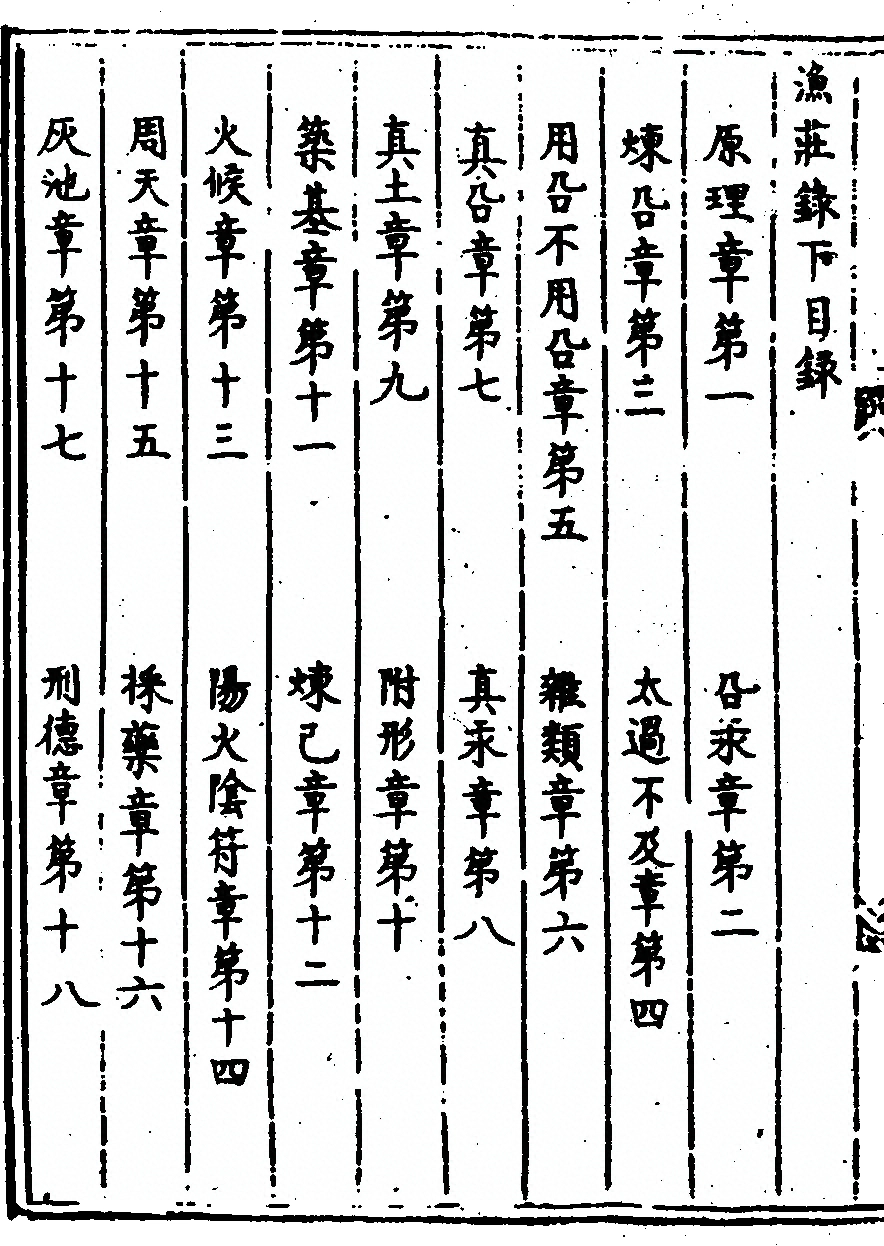 漁莊錄下目録
原理章第一　㕣汞章第二
煉㕣章第三　太過不及章第四
用㕣不用㕣章第五　雜類章第六
真㕣章第七　真汞章第八
真土章第九　附形章第十
築基章第十一　煉己章第十二
火候章第十三　陽火陰符章第十四
周天章第十五　採藥章第十六
灰池章第十七　刑德章第十八